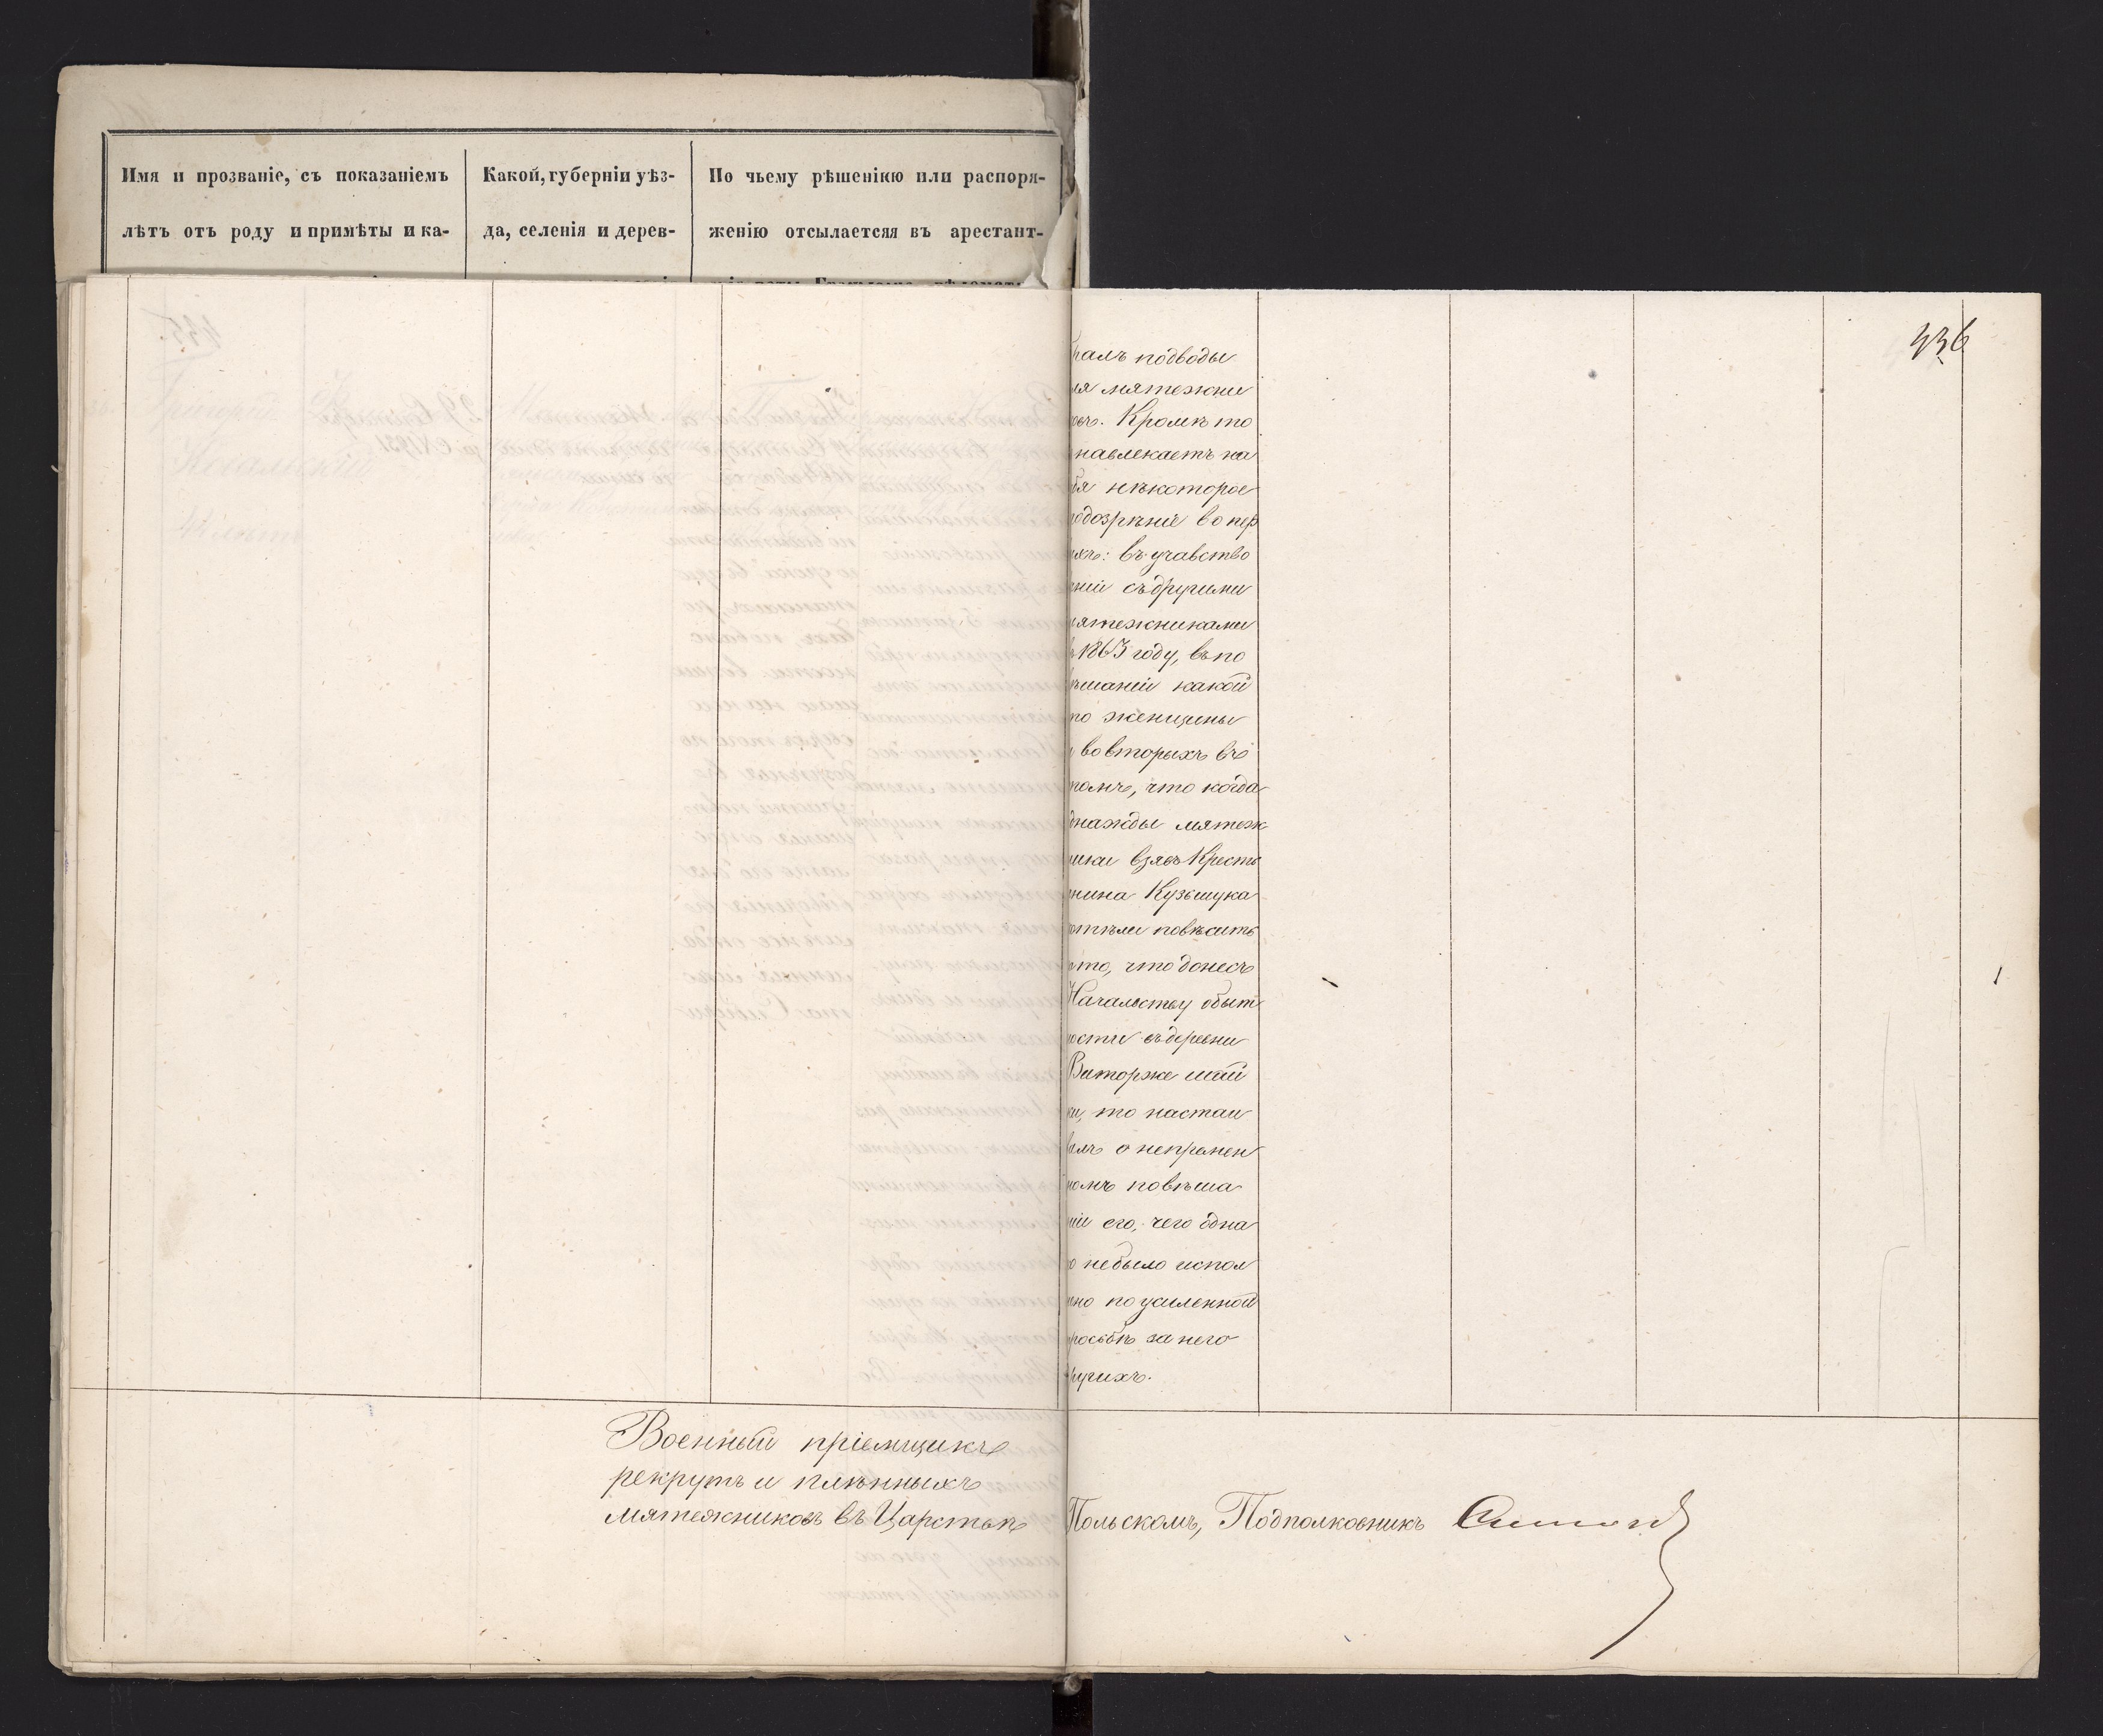 Имя и прозваніе, съ показаніемъ
лѣтъ отъ роду и примѣты и ка-
Какой, губерніи уѣз-
да, селенія и дерев-
По чьему рѣшенію или распоря-
женію отсылаетсяя въ арестант-
436
ралъ подводы
ля мятежни
овъ. Кромѣ то
навлекаетъ на
бя нѣкоторое
одозрѣніе во пер
ыхъ: въ учавство
ніи съ другими
ятежниками
1863 году, въ по
ѣшаніи какой
то женщины
во вторыхъ въ
томъ, что когда
днажды мятеж
ики взявъ Кресть
нина Кузьмука
отѣли повѣсить
то, что донесъ
Начальству о быт
ости въ деревни
Виторже шай
ки, то настаи
валъ о непремен
номъ повѣша
ніи его, чего одна
о небыло испол
ено по усиленной
росьбѣ за него
ругихъ.
Военный пріемщикъ
рекрутъ и плѣнныхъ
мятежниковъ въ Царствѣ Польскомъ, Подполковникъ